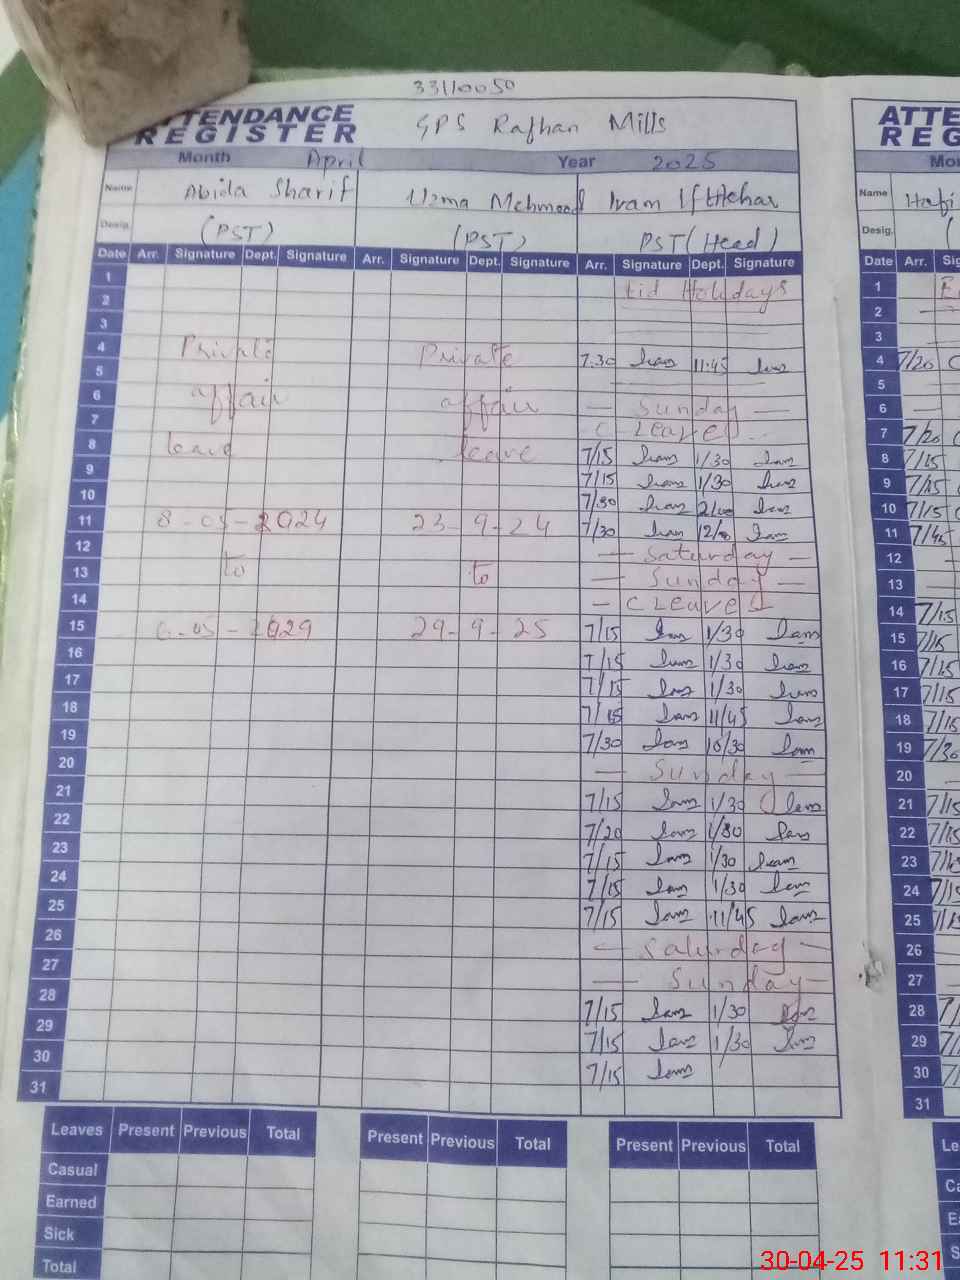 33110050
ATTENDANCE REGISTER
GPS Rafhan Mills
Month April Year 2025
Name Abida Sharif Uzma Mehmood Iram Iftikhar
Desig. (PST) (PST) PST (Head)
Date Arr. Signature Dept. Signature Arr. Signature Dept. Signature Arr. Signature Dept. Signature
1 Eid Holidays
2
3
4 Private Private 7.30 Iram 11:45 Iram
5
6 affair affair — Sunday —
7 C Leave
8 leave leave 7/15 Iram 1/30 Iram
9 7/15 Iram 1/30 Iram
10 7/30 Iram Iram
11 8-05-2024 23-9-24 7/30 Iram Iram
12 — Saturday —
13 to to — Sunday —
14 — C Leave
15 -05-2029 29-9-25 7/15 Iram 1/30 Iram
16 7/15 Iram 1/30 Iram
17 7/15 Iram 1/30 Iram
18 7/15 Iram 11/45 Iram
19 7/30 Iram 10/30 Iram
20 — Sunday —
21 7/15 Iram 1/30 Iram
22 7/20 Iram 1/30 Iram
23 7/15 Iram 1/30 Iram
24 7/15 Iram 1/30 Iram
25 7/15 Iram 11/45 Iram
26 — Saturday —
27 — Sunday —
28 7/15 Iram 1/30 Iram
29 7/15 Iram 1/30 Iram
30 7/15 Iram
31
Leaves Present Previous Total Present Previous Total Present Previous Total
Casual
Earned
Sick
Total
Name
Desig. (
Date Arr.
1
2
3
4 7/20
5
6 —
7 7/20
8 7/15
9 7/15
10 7/15
11 7/45
12
13
14 7/15
15 7/15
16 7/15
17 7/15
18 7/15
19 7/30
20 —
21 7/15
22 7/15
23
24 7/15
25 7/15
26
27
28
29
30
31
30-04-25 11:31